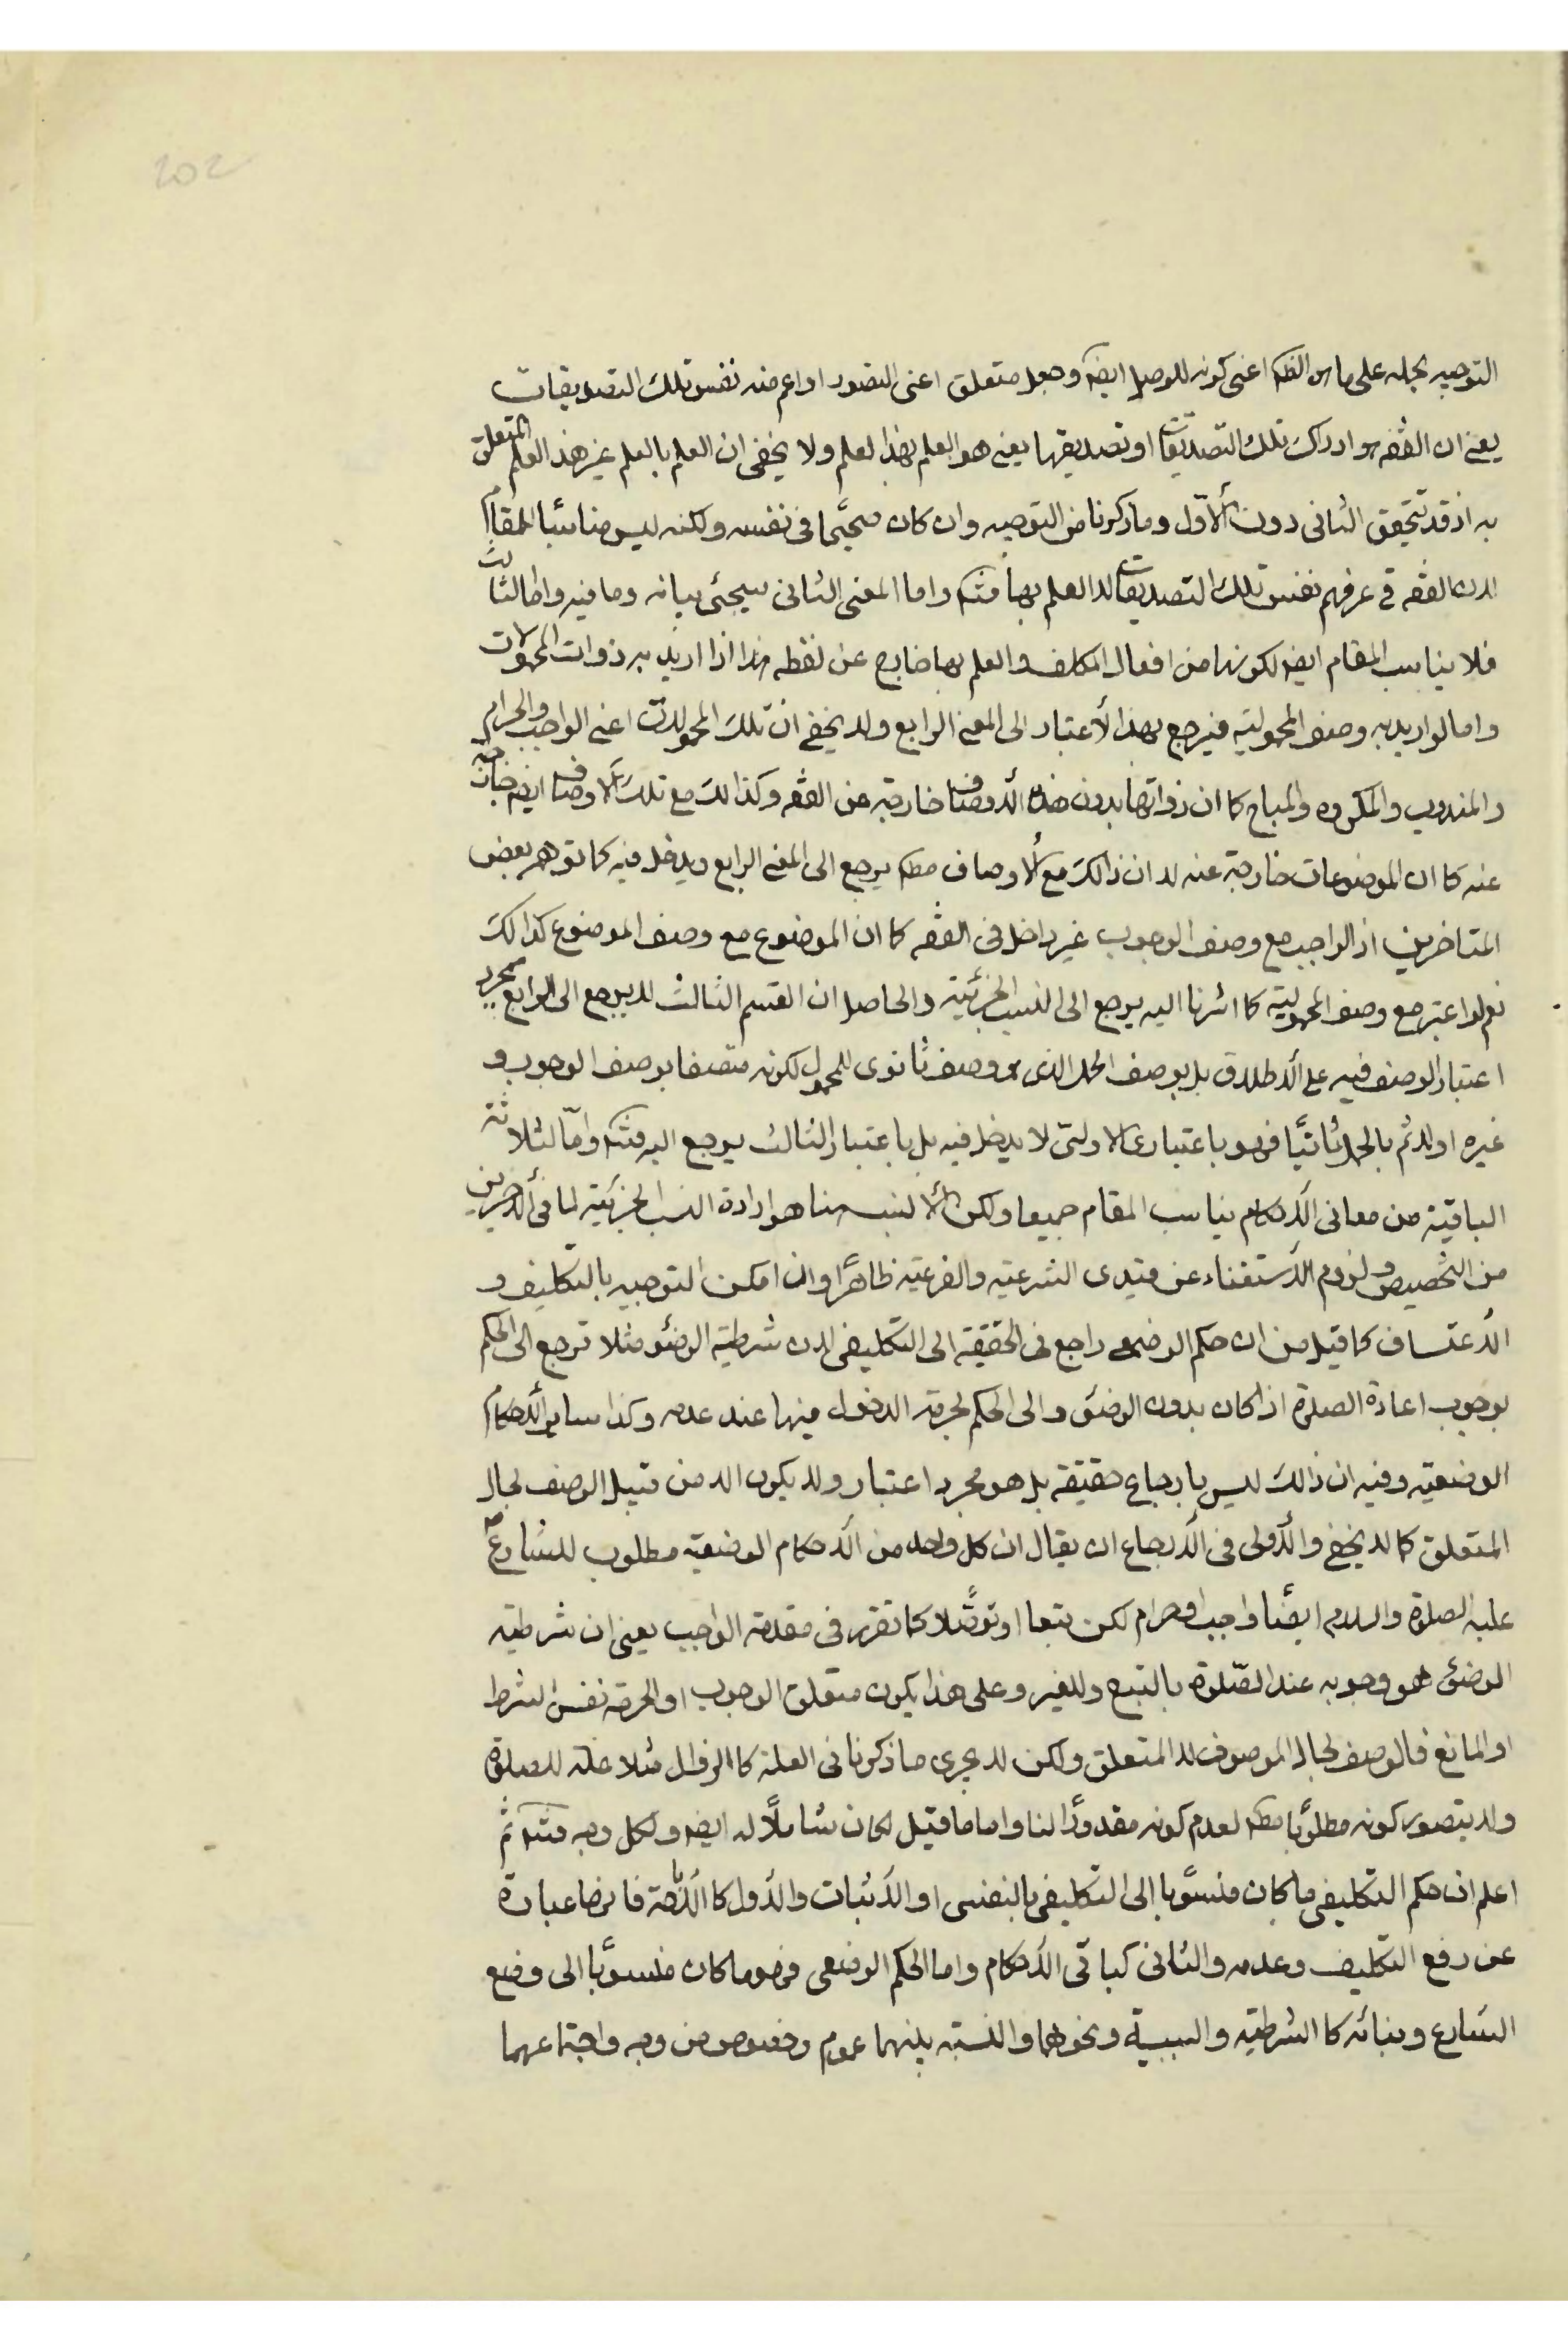 202
التوجيه بحمله على ما هو الظ اعنى كونه للوصل ايضا وجعل متعلق اعنى التصور او اعم منه نفس تلك التصديقات
يعنى ان الفقه هو ادراك تلك التصديقات او تصديقها يعنى هو العلم بهذا لعلم ولا يخفى ان العلم بالعلم غير هذ العلم المتعلق
به اذ قد تتحقق الثانى دون الاول وما ذكرنا من التوجيه وان كان صحيحا فى نفسه ولكنه ليس مناسبا للمقام
لان الفقه فى عرفهم نفس تلك التصديقات لا العلم بها فتد واما المعنى الثانى سيجئ بيانه وما فيه واما الثالث
فلا يناسب المقام ايضا لكونها من افعال المكلف والعلم بها خارج عن لفظه هذا اذا اريد به ذوات المحمولات
واما لو اريد به وصف المحمولية فيرجع بهذا لأعتبار الى المعنى الرابع ولا يخفى انّ تلك المحمولات اعنى الواجب والحرام
والمندوب والمكروه والمباح كما ان ذواتها بدون هذه الأوصاف خارجة عن الفقه وكذالك مع تلك الاوصاف ايضا خارجة
عنه كما ان الموضوعات خارجة عنه لا ان ذالك مع الاوصاف مط يرجع الى المعنى الرابع ويدخل فيه كما توهم بعض
المتاخرين اذ الواجب مع وصف الوجوب غير داخل فى الفقه كما ان الموضوع مع وصف الموضوع كذالك
نعم لو اعتبر مع وصف المحمولية كما اشرنا اليه يرجع الى النسب الجزئية والحاصل ان القسم الثالث لا يرجع الى الرابع بمجرد
اعتبار الوصف فيه على الأطلاق بل بوصف الحمل الذى هو وصف ثانوى للمحمول لكونه متصفا بوصف الوجوب و
غيره اولا ثم بالحمل ثانيًا فهو باعتبارى الاولين لا يدخل فيه بل باعتبار الثالث يرجع اليه فتد وامّا لثلاثة
الباقية من معانى الأحكام يناسب المقام جميعا ولكن الأنسب هنا هو ارادة النسب الجزئية لما فى الأخيرين
من التخصيص ولزوم الأستغناء عن قيدى الشرعية والفرعية ظاهرًا وان امكن التوجيه بالتكليف و
الأعتساف كما قيل من ان حكم الوضعى راجع فى الحقيقة الى التكليفى لان شرطية الوضؤ مثلا ترجع الى الحكم
بوجوب اعادة الصلوة اذا كان بدون الوضئ والى الحكم لحرمة الدخول فيها عند عدمه وكذا ساير الأحكام
الوضعية وفيه ان ذالك ليس بارجاع حقيقة بل هو مجرد اعتبار ولا يكون الا من قبيل الوصف بحال
المتعلق كما لا يخفى والأولى فى الأرجاع ان يقال ان كل واحد من الأحكام الوضعية مطلوب للشارع
عليه الصلوة والسلام ايضًا واجب او حرام لكن تبعا او توصّلا كما تقرر فى مقدمة الواجب يعنى ان شرطية
الوضئ هو وجوبه عند الصّلوة بالتبع وللغير وعلى هذا يكون متعلق الوجوب او الحرمة نفس الشرط
او المانع فالوصف بحال الموصوف لا المتعلق ولكن لا يجرى ما ذكرنا فى العلة كالزوال مثلا علة للصلوة
ولا يتصور كونه مطلوبًا مط لعدم كونه مقدورًا لنا واما ما قيل لكان شاملًا له ايضا ولكل وجه فتد ثم
اعلم ان حكم التكليفى ما كان منسوبًا إلى التكليفى بالنفى او الأثبات والأول كا الأباحة فا نها عبارة
عن رفع التكليف وعدمه والثانى كباقى الأحكام واما الحكم الوضعى فهو ما كان منسوبًا الى وضع
الشارع وبنائه كا الشرطية والسببية ونحوهما والنسبة بينهما عموم وخصوص من وجه واجتماعهما